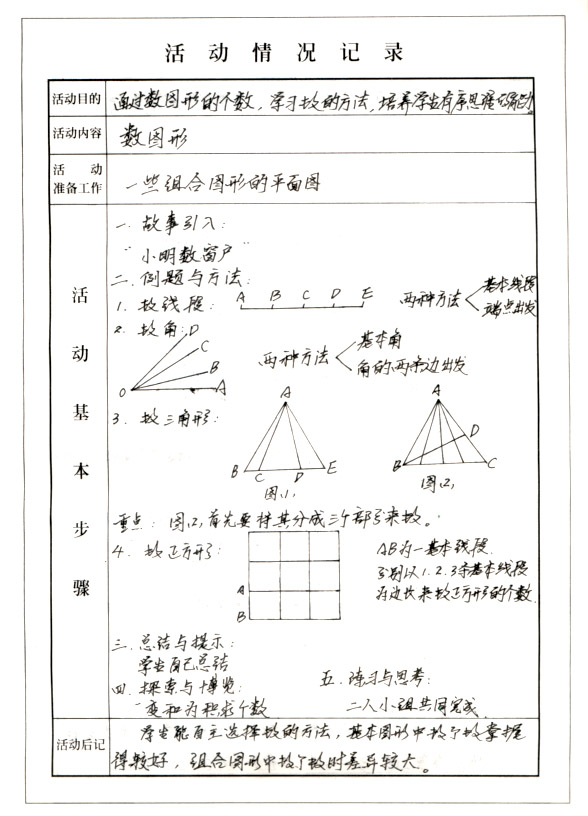 活动情况记录
活动目的 通过数图形的个数，学习数的方法，培养学生有序思维的能力。
活动内容 数图形
活动准备工作 一些组合图形的平面图
活动基本步骤
一.故事引入：
"小明数窗户"
二.例题与方法：
1.数线段： A B C D E 两种方法 基本线段 端点出发
2.数角： O A B C D 两种方法 基本角 角的两条边出发
3.数三角形： A B C D E 图(1) A B C D 图(2)
重点：图(2)首先要将其分成三个部分来数。
4.数正方形： A B AB为一基本线段.
分别以1.2.3条基本线段
为边长来数正方形的个数.
三.总结与提示：
学生自己总结
四.探索与博览：
"变和为积求个数
五.练习与思考：
二人小组共同完成.
活动后记 学生能自主选择数的方法，基本图形中数个数掌握
得较好，组合图形中数个数时差异较大。